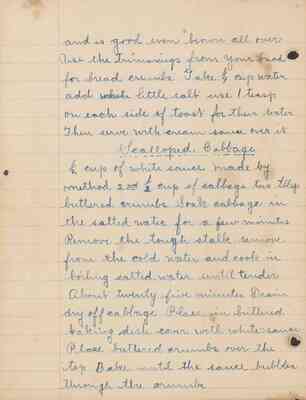 and is good even brown all over
Use the trimmings from your bread
for bread crumbs Take ½ cup water
add white little salt use 1 teasp
on each side of toast for their water
Then serve with cream sauce over it
Scalloped Cabbage
½ cup of white sauce made by
method 2nd ½ cup of cabbage two tblsp
buttered crumbs Soak cabbage in
the salted water for a few minutes
Remove the tough stalk remove
from the cold water and cook in
boiling salted water until tender
About twenty five minutes Drain
dry off cabbage Place in buttered
baking dish cover with white sauce
Place buttered crumbs over the
top Bake until the sauce bubbles
through the crumbs